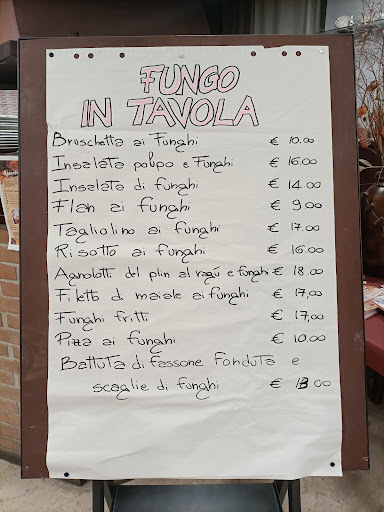 FUNGO
IN TAVOLA
Bruschetta ai Funghi € 10.00
Insalata polpo e Funghi € 16.00
Insalata di funghi € 14.00
Flan ai funghi € 9.00
Tagliolino ai funghi € 17.00
Risotto ai funghi € 16.00
Agnolotti del plin al ragù e funghi € 18.00
Filetto di maiale ai funghi € 17,00
Funghi fritti € 17,00
Pizza ai funghi € 10.00
Battuta di fassone fonduta e
scaglie di funghi € .00